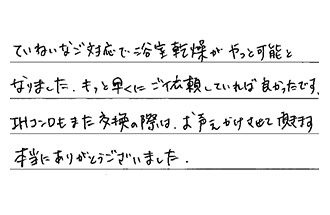 ていねいなご対応で浴室乾燥がやっと可能と
なりました.もっと早くにご依頼していれば良かったです.
IHコンロもまた交換の際は、お声がけさせて頂きます
本当にありがとうございました.